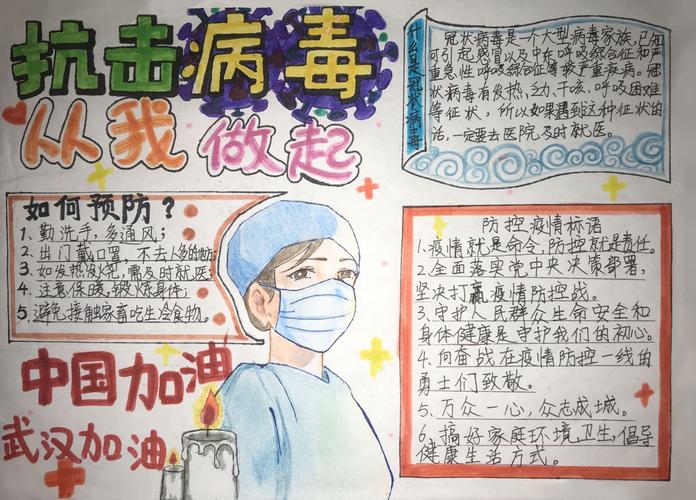 抗击病毒
从我做起
什么是冠状病毒
冠状病毒是一个大型病毒家族,已知
可引起感冒以及中东呼吸综合征和严
重急性呼吸综合征等较严重疾病。冠
状病毒有发热、干咳、呼吸困难
等症状,所以如果遇到这种症状的
话,一定要去医院及时就医。
如何预防?
1、勤洗手,多通风;
2、出门戴口罩,不去人多的地方;
3、如发热发烧,需及时就医;
4、注意保暖,锻炼身体;
5、避免接触家畜吃生冷食物。
中国加油
武汉加油
防控疫情标语
1.疫情就是命令,防控就是责任。
2.全面落实党中央决策部署,
坚决打赢疫情防控战。
3.守护人民群众生命安全和
身体健康是守护我们的初心。
4.向奋战在疫情防控一线的
勇士们致敬。
5、万众一心,众志成城。
6、搞好家庭环境卫生,倡导
健康生活方式。